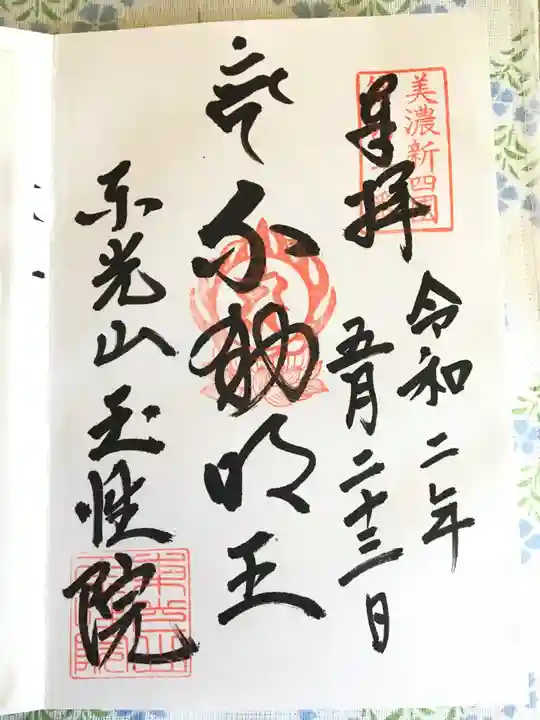 美濃新四国
奉拝
令和二年
五月二十三日
不動明王
東光山玉性院